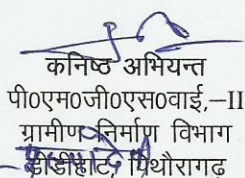 कनिष्ठ अभियन्त
पी0एम0जी0एस0वाई,–II
ग्रामीण निर्माण विभाग
डीडीहाट, पिथौरागढ़